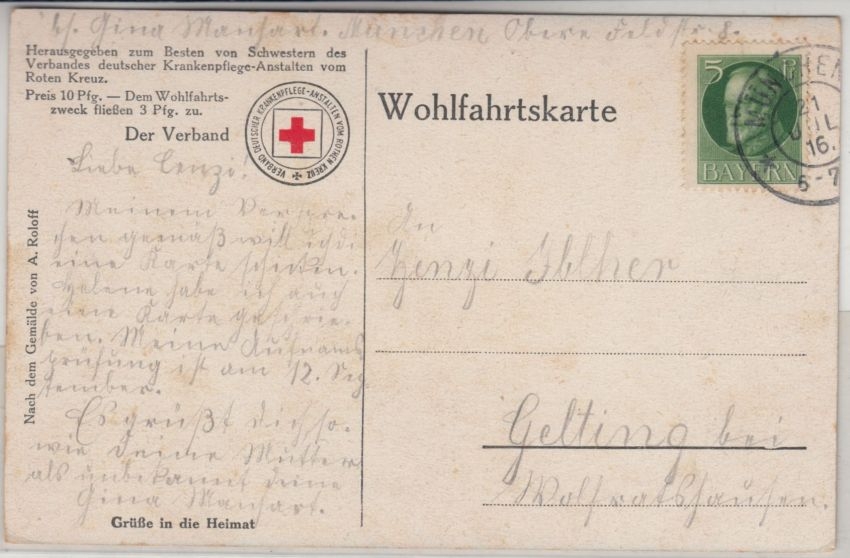 Gina Manhart. München Obere Feldstr. 8.
Herausgegeben zum Besten von Schwestern des
Verbandes deutscher Krankenpflege-Anstalten vom
Roten Kreuz.
Preis 10 Pfg. — Dem Wohlfahrts-
zweck fließen 3 Pfg. zu.
Der Verband
VERBAND DEUTSCHER KRANKENPFLEGE-ANSTALTEN VOM ROTHEN KREUZ
Liebe Cenzi!
Meinem Verspre-
chen gemäß will ich di
eine Karte schicken.
Helene habe ich auch
eine Karte geschrie-
ben. Meine Aufnams
prüfung ist am 12. Sep
tember.
Es grüßt dich so-
wie deine Mutter
als unbekannt deine
Gina Manhart.
Grüße in die Heimat
Nach dem Gemälde von A. Roloff
Wohlfahrtskarte
5 P
BAYERN
MÜNCHEN
21
JUL
16.
6-7
An
Zenzi
Gelting bei
Wolfratshausen.